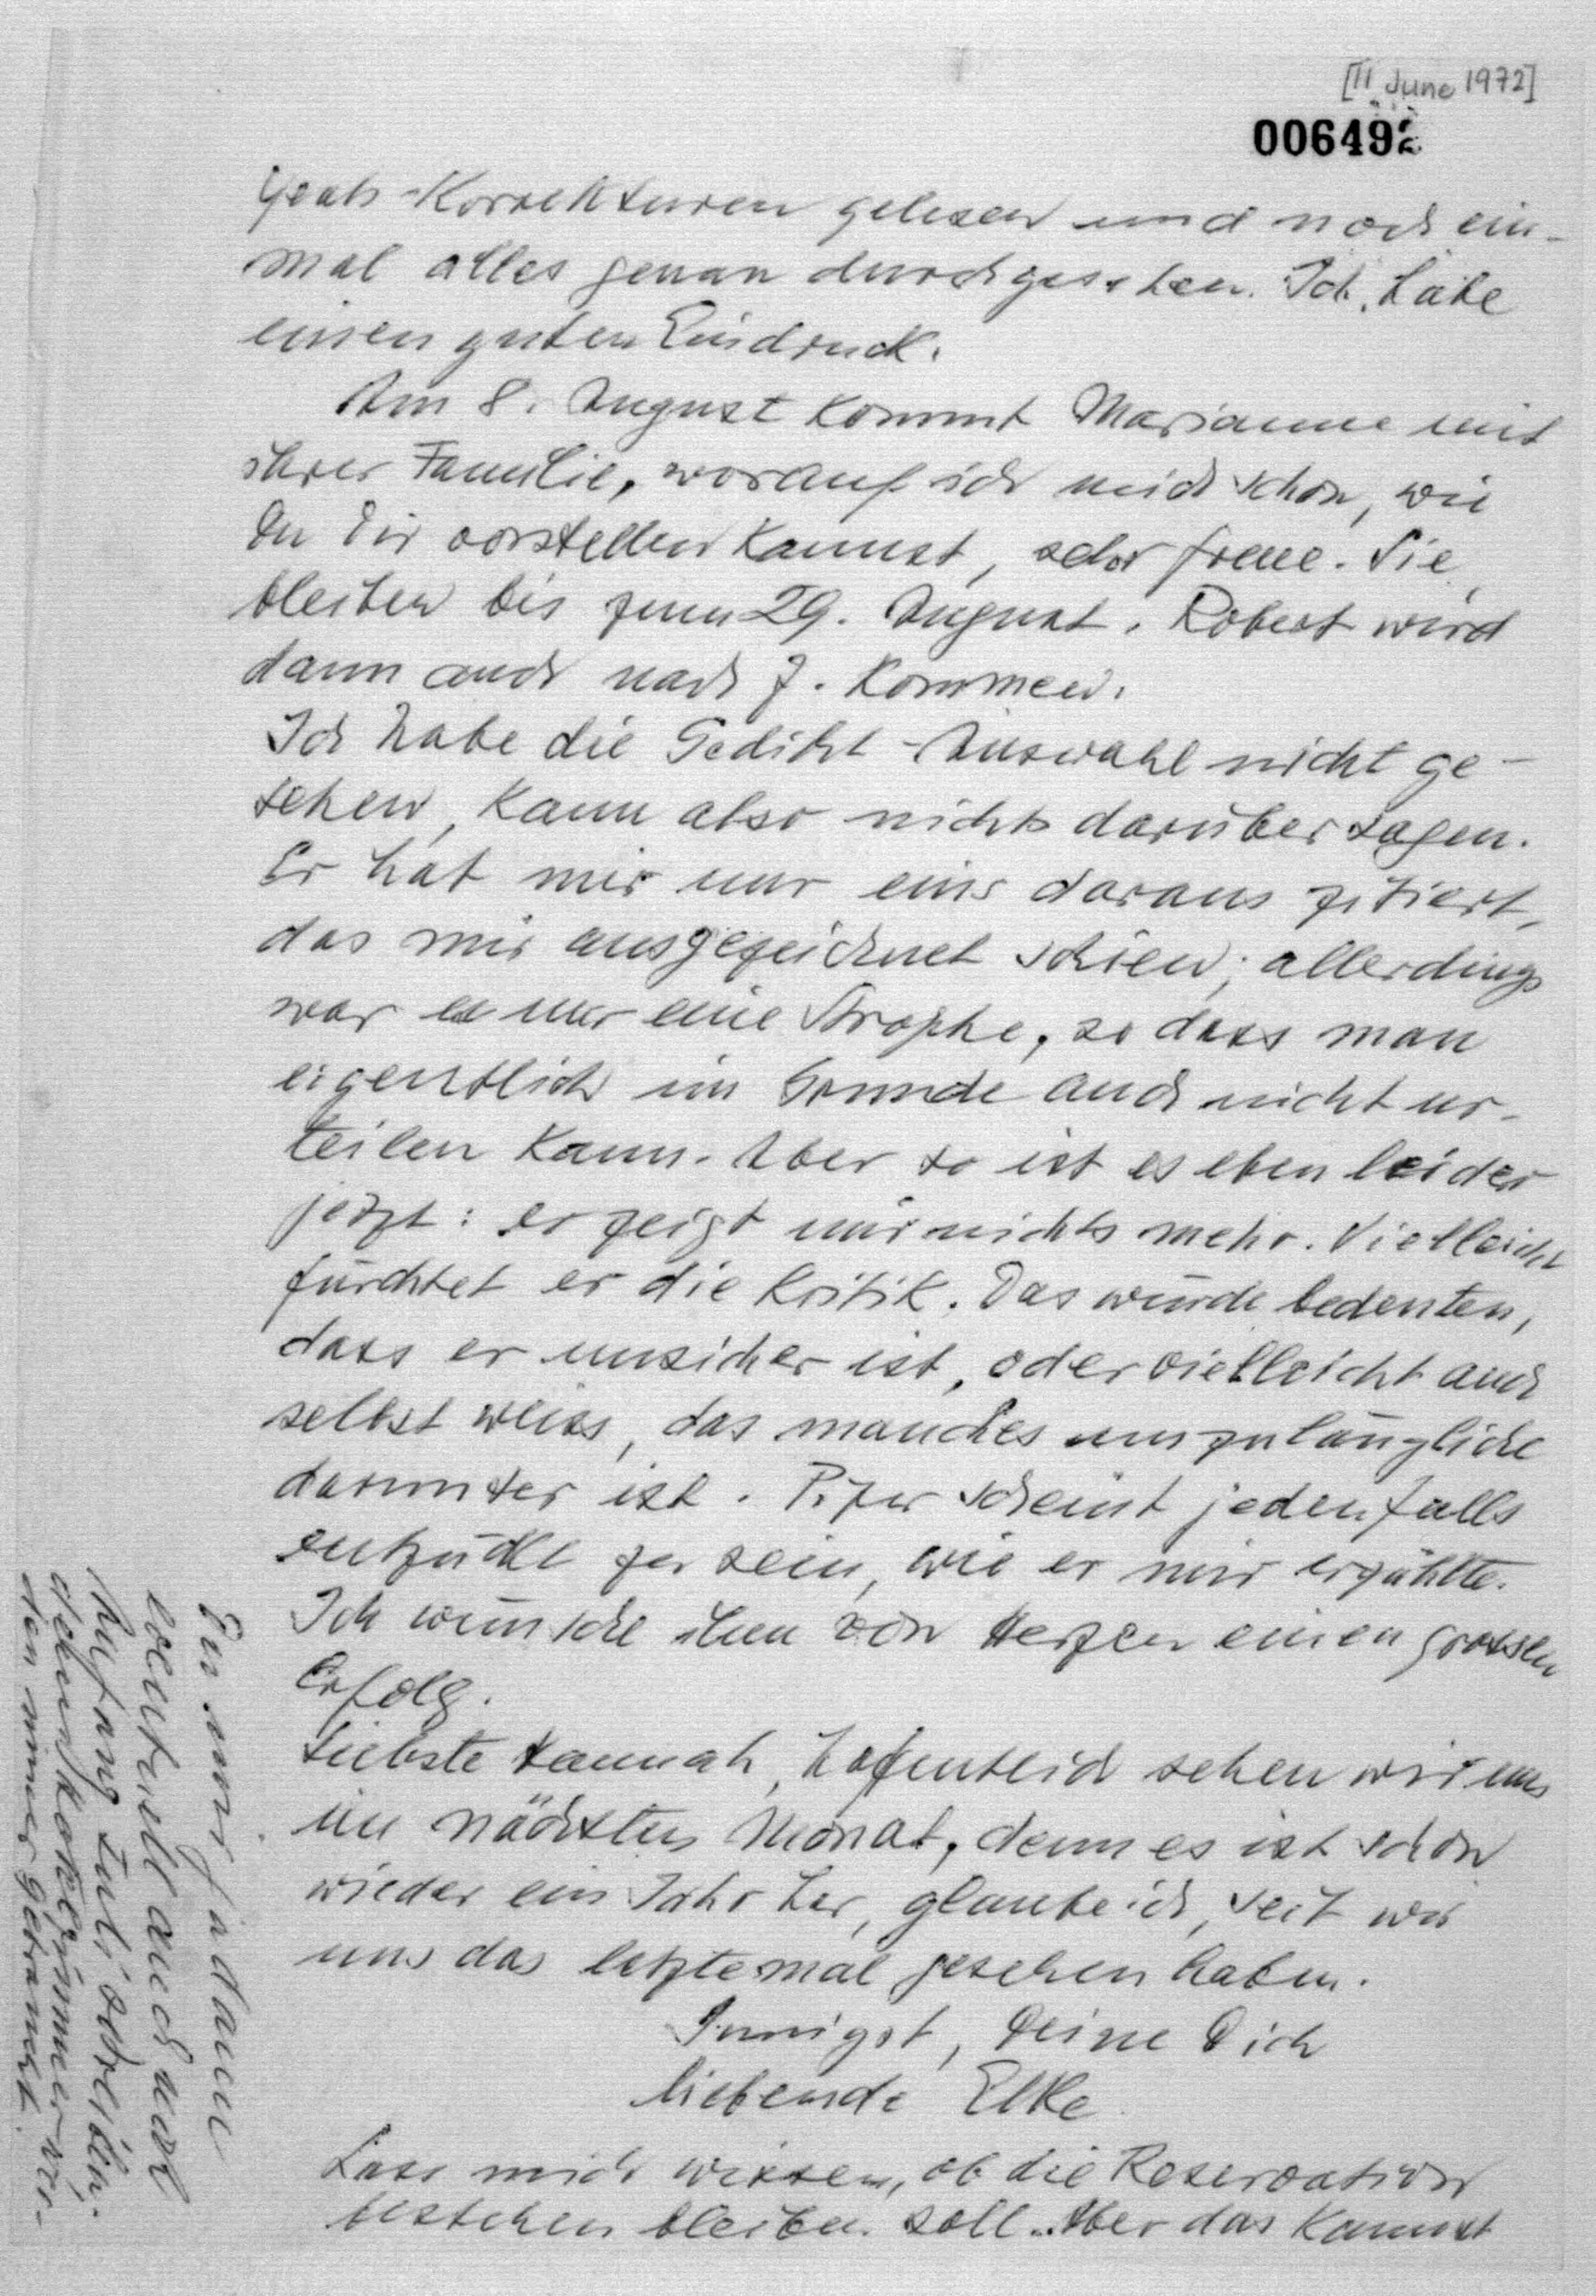 [11 June 1972]
006492
Yeats-Korrekturen gelesen und noch ein-
mal alles genau durchgesehen. Ich habe
einen guten Eindruck.
Am 8. August kommt Marianne mit
ihrer Familie, worauf ich mich schon, wie
Du Dir vorstellen kannst, sehr freue. Sie
bleiben bis zum 29. August. Robert wird
dann auch nach Z. kommen.
Ich habe die Gedicht-Auswahl nicht ge-
sehen, kann also nichts darüber sagen.
Er hat mir nur eins daraus zitiert,
das mir ausgezeichnet schien; allerdings
war es nur eine Strophe, so dass man
eigentlich im Grunde auch nicht ur-
teilen kann. Aber so ist es eben leider
jetzt: er zeigt mir nichts mehr. Vielleicht
fürchtet er die Kritik. Das würde bedeuten,
dass er unsicher ist, oder vielleicht auch
selbst weiss, das manches unzulängliche
darunter ist. Piper scheint jedenfalls
entzückt zu sein, wie er mir erzählte.
Ich wünsche ihm von Herzen einen grossen
Erfolg.
Liebste Hannah, hoffentlich sehen wir uns
im nächsten Monat, denn es ist schon
wieder ein Jahr her, glaube ich, seit wir
uns das letztemal gesehen haben.
Innigst, Deine Dich
liebende Elke
Lass mich wissen, ob die Reservation
bestehen bleiben soll. Aber das kannst
Du mir ja dann
eventuell auch noch
Anfang Juli schreiben.
denn Hotelzimmer wer-
den immer gebraucht.